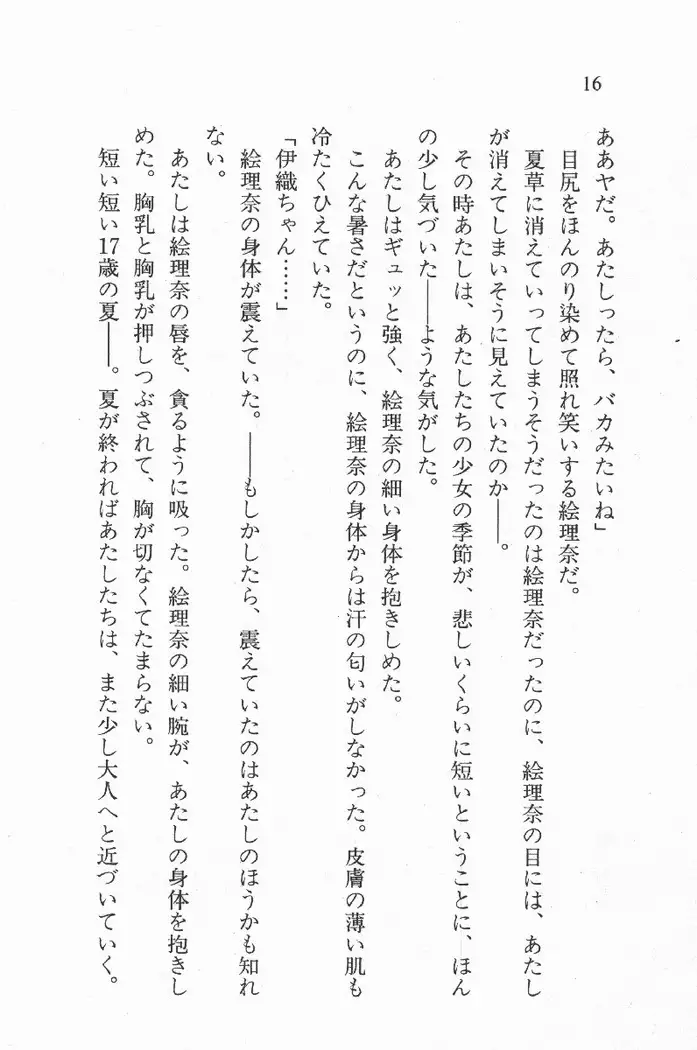 16
ああヤだ。あたしったら、バカみたいね」
目尻をほんのり染めて照れ笑いする絵理奈だ。
夏草に消えていってしまうそうだったのは絵理奈だったのに、絵理奈の目には、あたし
が消えてしまいそうに見えていたのか――。
その時あたしは、あたしたちの少女の季節が、悲しいくらいに短いということに、ほん
の少し気づいた――ような気がした。
あたしはギュッと強く、絵理奈の細い身体を抱きしめた。
こんな暑さだというのに、絵理奈の身体からは汗の匂いがしなかった。皮膚の薄い肌も
冷たくひえていた。
「伊織ちゃん……」
絵理奈の身体が震えていた。――もしかしたら、震えていたのはあたしのほうかも知れ
ない。
あたしは絵理奈の唇を、貪るように吸った。絵理奈の細い腕が、あたしの身体を抱きし
めた。胸乳と胸乳が押しつぶされて、胸が切なくてたまらない。
短い短い17歳の夏――。夏が終わればあたしたちは、また少し大人へと近づいていく。